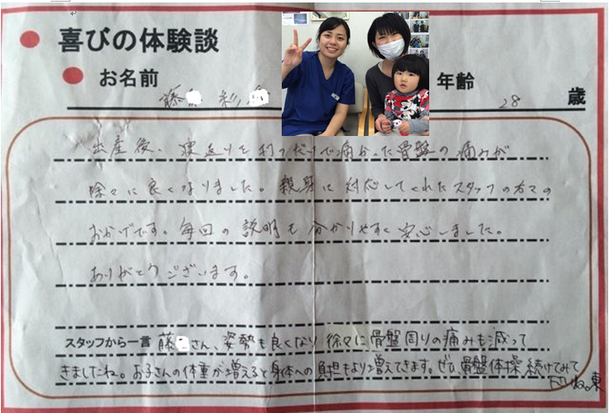 喜びの体験談
お名前 藤 彩 年齢 28 歳
出産後、寝返りを打つだけで痛かった骨盤の痛みが
徐々に良くなりました。親身に対応してくれたスタッフの方々の
おかげです。毎回の説明も分かりやすく安心しました。
ありがとうございます。
スタッフから一言 藤 さん、姿勢も良くなり徐々に骨盤周りの痛みも減って
きましたね。お子さんの体重が増えると身体への負担もより増えてきます。ぜひ、骨盤体操続けてみて
下さいね。東